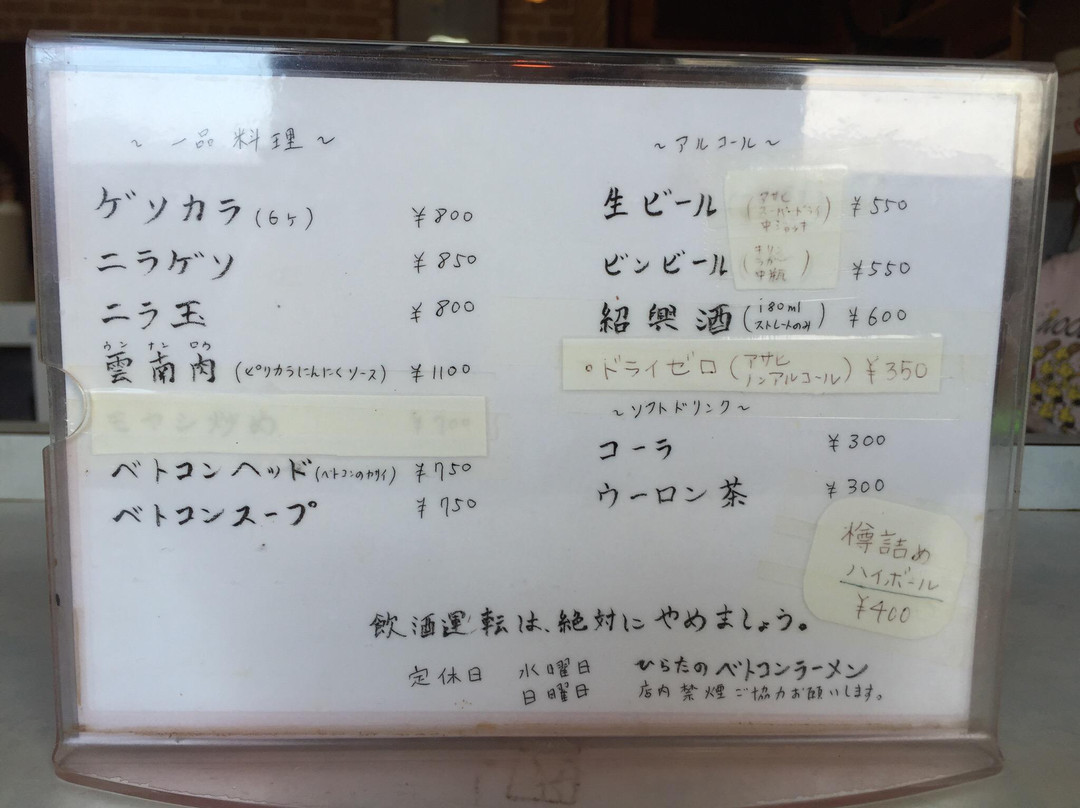 ～一品料理～
ゲソカラ(6ヶ) ￥800
ニラゲソ ￥850
ニラ玉 ￥800
ウンナンロウ
雲南肉(ピリカラにんにくソース) ￥1100
モヤシ炒め ￥700
ベトコンヘッド(ベトコンのカサイ) ￥750
ベトコンスープ ￥750
～アルコール～
生ビール(アサヒ
スーパードライ
中ジョッキ) ￥550
ビンビール(キリン
ラガー
中瓶) ￥550
紹興酒(180ml
ストレートのみ) ￥600
・ドライゼロ(アサヒ
ノンアルコール) ￥350
～ソフトドリンク～
コーラ ￥300
ウーロン茶 ￥300
樽詰め
ハイボール
￥400
飲酒運転は、絶対にやめましょう。
定休日 水曜日
日曜日
ひらたのベトコンラーメン
店内禁煙ご協力お願いします。